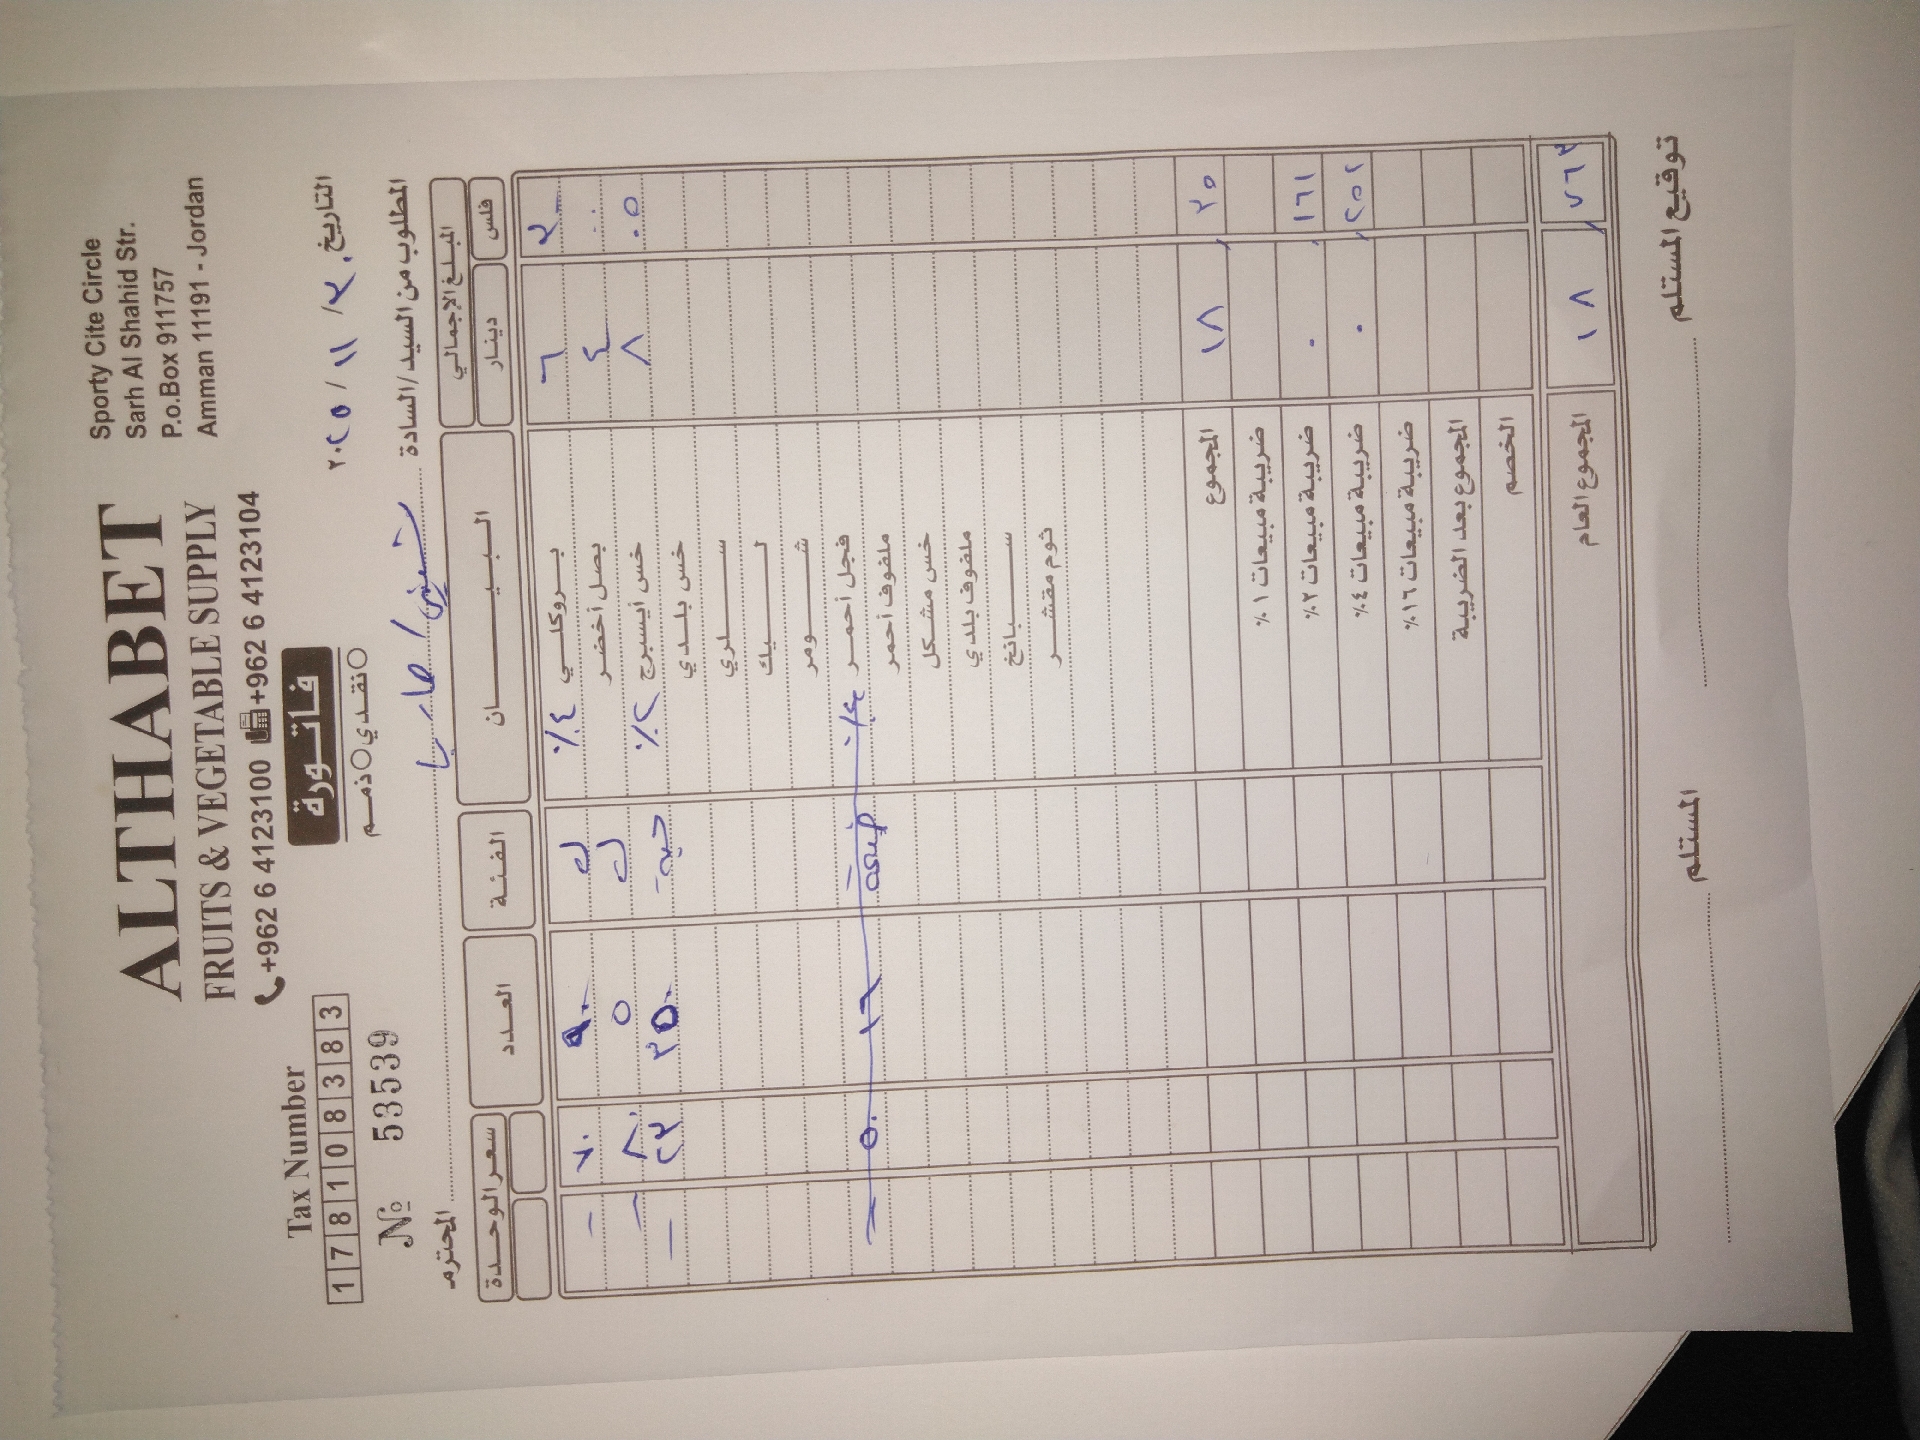 ALTHABET
FRUITS & VEGETABLE SUPPLY
+962 6 4123100 +962 6 4123104
Sporty Cite Circle
Sarh Al Shahid Str.
P.o.Box 911757
Amman 11191 - Jordan
Tax Number
1 7 8 1 0 8 3 8 3
№ 53539
فاتورة
نقدي ذمم
التاريخ ٢ / ١١ / ٢٠٢٥
المطلوب من السيد/السادة المحترم
المبلغ الإجمالي البيان الفئة العدد سعر الوحدة
فلس دينار
٢٠٠ ٦ بروكلي ٤٪ ك ٩٠ ٧٠
٠٠٠ ٤ بصل أخضر ك ٥ ٨٠٠
٠٥٠ ٨ خس أيسبرج ٢٪ حبة ٣٥٠ ٢٣
خس بلدي
سلري
ليك
شومر
فجل أحمر ٤٪ ١٦ ٥٠
ملفوف أحمر
خس مشكل
ملفوف بلدي
سبانخ
ثوم مقشر
المجموع ١٨ , ٣٥
ضريبة مبيعات ١٪
ضريبة مبيعات ٢٪ ٠ , ١٦١
ضريبة مبيعات ٤٪ ٠ , ٢٥٢
ضريبة مبيعات ١٦٪
المجموع بعد الضريبة
الخصم
المجموع العام ١٨ , ٧٦٣
توقيع المستلم المستلم